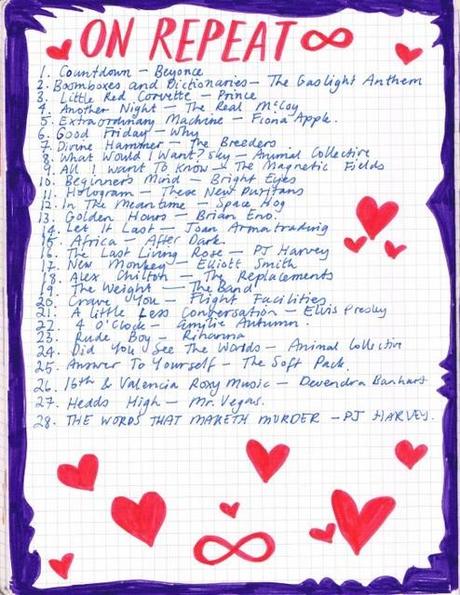 ON REPEAT ∞
1. Countdown — Beyonce
2. Boomboxes and Dictionaries — The Gaslight Anthem
3. Little Red Corvette — Prince
4. Another Night — The Real McCoy
5. Extraordinary Machine — Fiona Apple.
6. Good Friday — Why
7. Divine Hammer — The Breeders
8. What Would I Want? Sky — Animal Collective
9. All I Want To Know — The Magnetic Fields
10. Beginner's Mind — Bright Eyes
11. Hologram — These New Puritans
12. In The Meantime — Space Hog
13. Golden Hours — Brian Eno.
14. Let It Last — Joan Armatrading
15. Africa — After Dark.
16. The Last Living Rose — PJ Harvey
17. New Monkey — Elliott Smith
18. Alex Chilton — The Replacements
19. The Weight — The Band
20. Crave You — Flight Facilities
21. A Little Less Conversation — Elvis Presley
22. 4 O'Clock — Emilie Autumn.
23. Rude Boy — Rihanna
24. Did You See The Worlds — Animal Collective
25. Answer To Yourself — The Soft Pack.
26. 16th & Valencia Roxy Music — Devendra Banhart
27. Heads High — Mr. Vegas.
28. THE WORDS THAT MAKETH MURDER — PJ HARVEY.